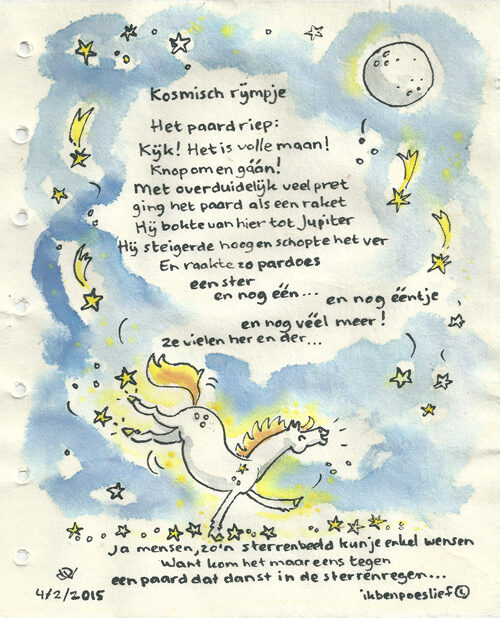 Kosmisch rijmpje
Het paard riep:
Kijk! Het is volle maan!
Knop om en gáán!
Met overduidelijk veel pret
ging het paard als een raket
Hij bokte van hier tot Jupiter
Hij steigerde hoog en schopte het ver
En raakte zo pardoes
een ster
en nog één... en nog ééntje
en nog véél meer!
ze vielen her en der...
Ja mensen, zo'n sterrenbeeld kun je enkel wensen
Want kom het maar eens tegen
een paard dat danst in de sterrenregen...
4/2/2015
ikbenpoeslief